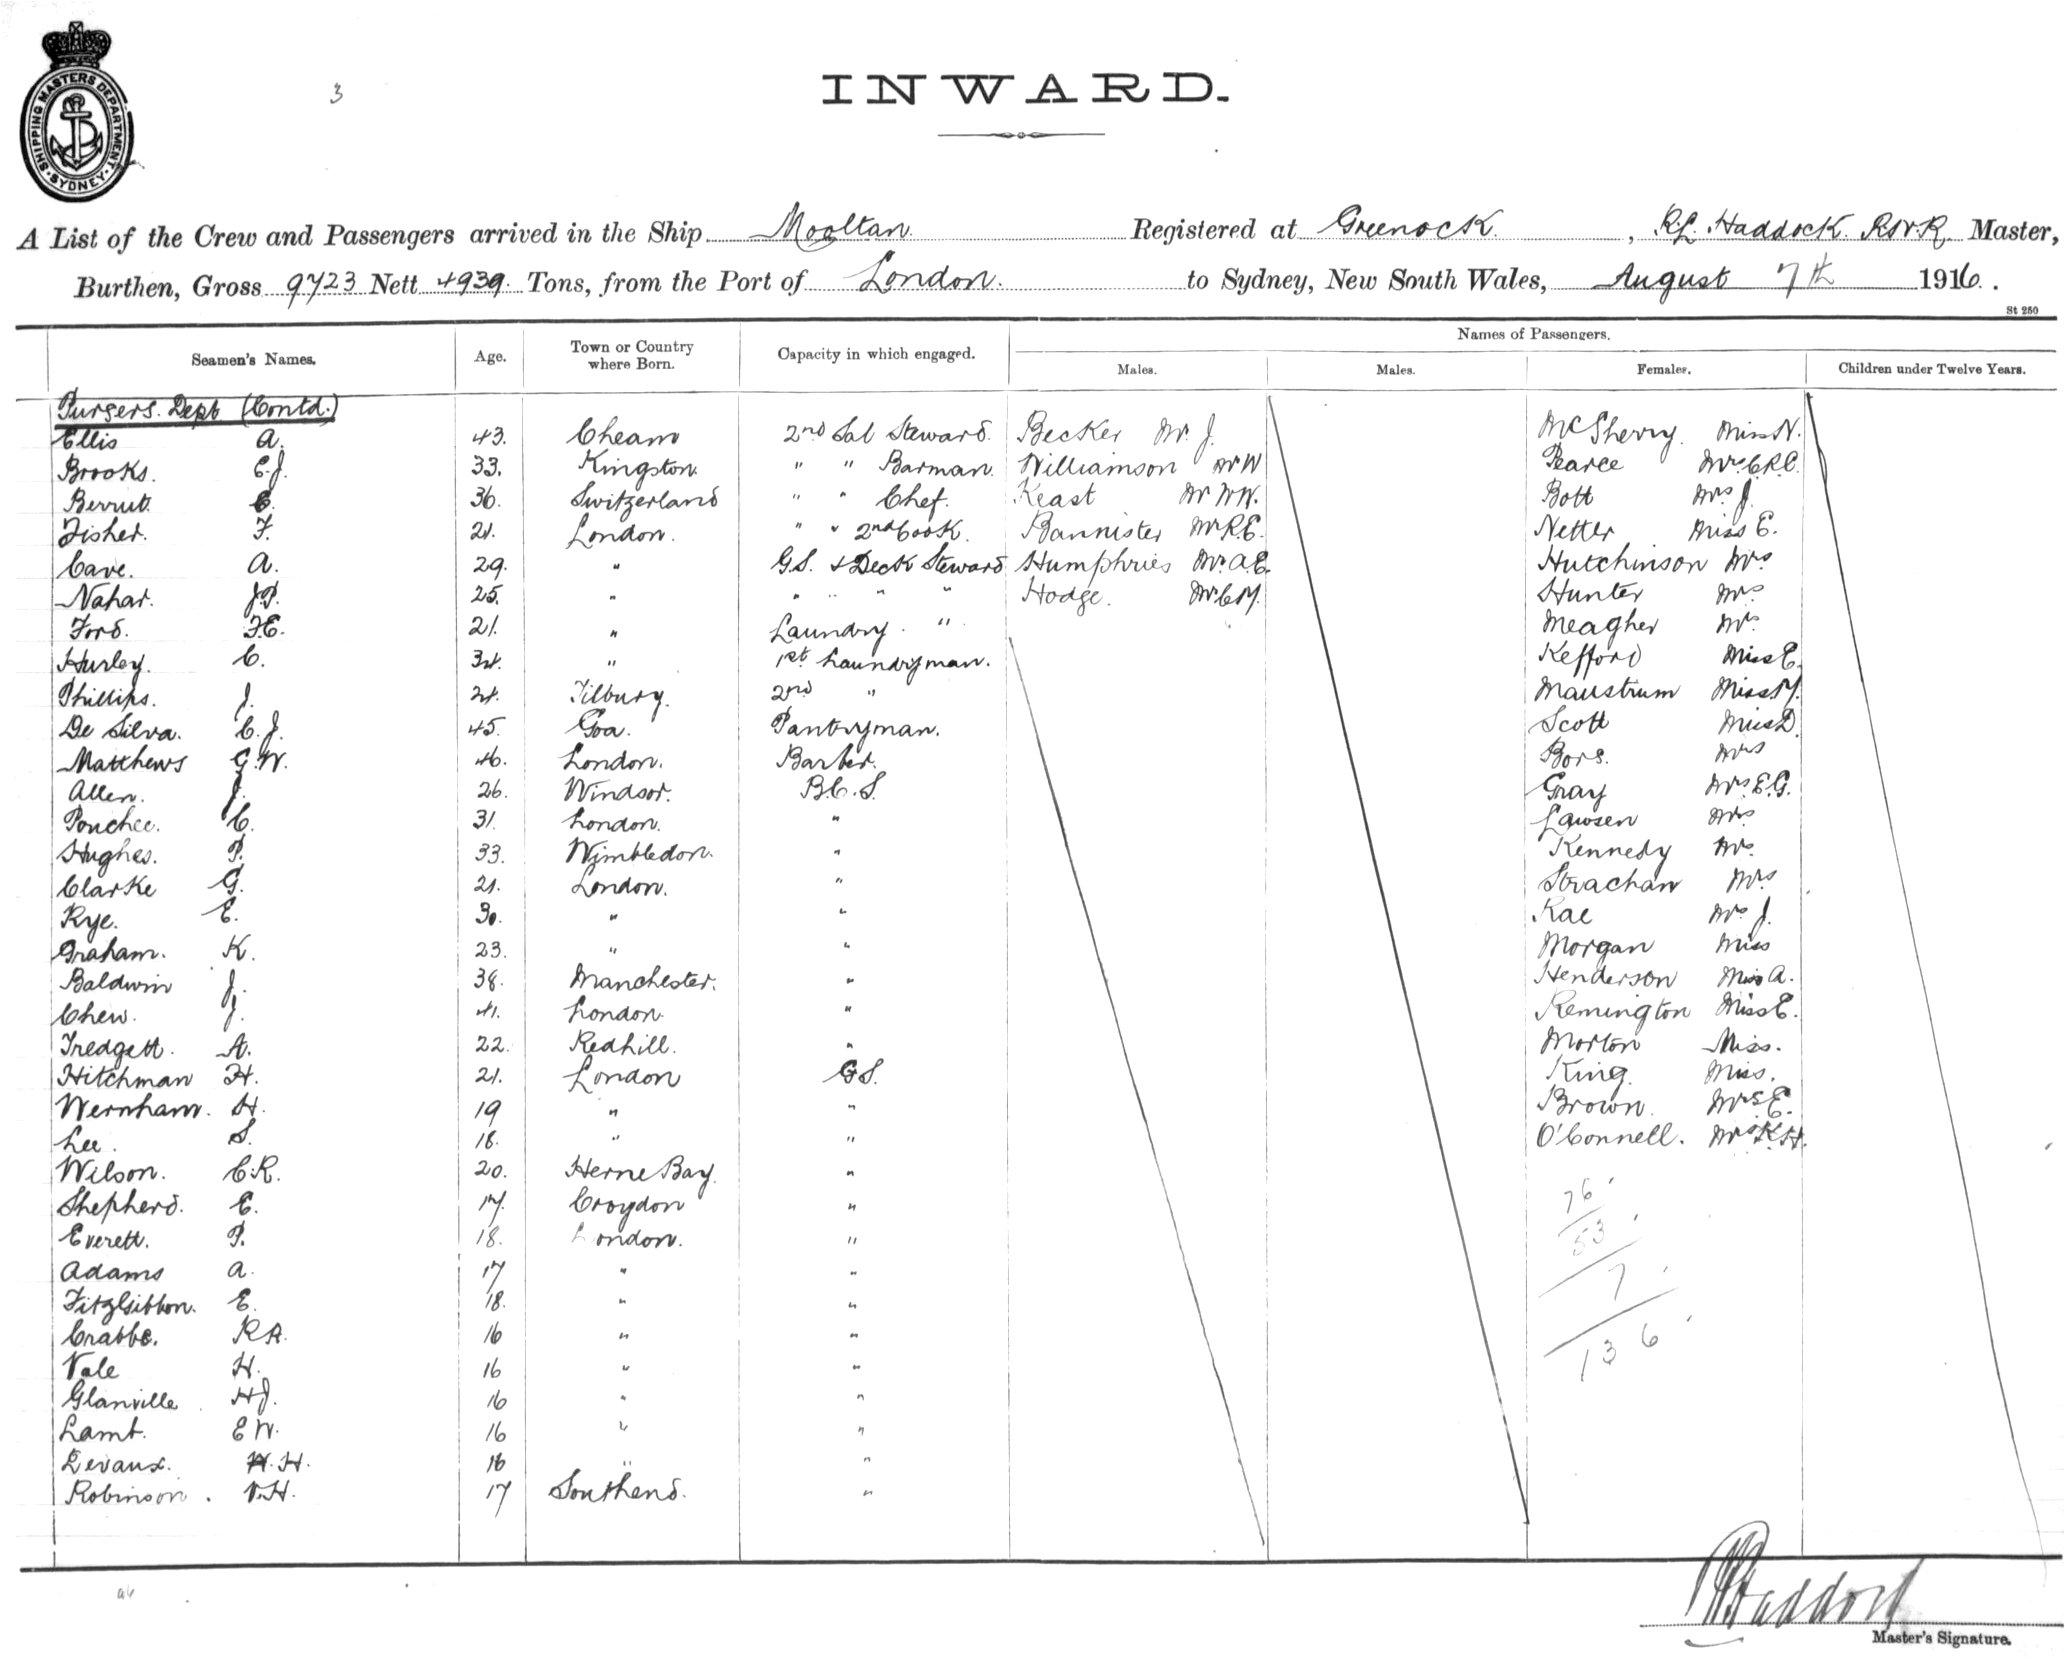 SHIPPING MASTERS DEPARTMENT · SYDNEY ·
3
INWARD.
A List of the Crew and Passengers arrived in the Ship Mooltan. Registered at Greenock. , R.L. Haddock. RNR Master,
Burthen, Gross 9723 Nett 4939. Tons, from the Port of London. to Sydney, New South Wales, August 7th 1916.
St 250
Names of Passengers.
Seamen's Names. Age. Town or Country where Born. Capacity in which engaged. Males. Males. Females. Children under Twelve Years.
Pursers. Dept (Contd.)
Ellis A. 43. Cheam 2nd Sal Steward. Becker Mr. J. McSherry. Miss N.
Brooks. E.J. 33. Kingston. " " Barman. Williamson Mr W Pearce Mrs. C.R.C.
Berrut. C. 36. Switzerland " " Chef. Keast Mr W.W. Bott Mrs J.
Fisher. F. 21. London. " " 2nd Cook. Bannister Mr R.E. Netter Miss E.
Cave. A. 29. " G.S. & Deck Steward Humphries Mr. A.E. Hutchinson Mrs
Nahar. J.P. 25. " " " " " Hodge. Mr C.M. Hunter Mrs
Ford. F.E. 21. " Laundry. " Meagher Mrs
Hurley. C. 34. " 1st Laundryman. Kefford Miss E.
Phillips. J. 24. Tilbury. 2nd " Maustrum Miss M.
De Silva. C.J. 45. Goa. Pantryman. Scott Miss D.
Matthews G.W. 46. London. Barber. Bors. Mrs
Allen. J. 26. Windsor. B.C.S. Gray Mrs E.G.
Pouchee. C. 31. London. " Lawsen Mrs
Hughes. P. 33. Wimbledon. " Kennedy Mrs.
Clarke G. 21. London. " Strachan Mrs
Rye. E. 30. " " Rae Mrs J.
Graham. K. 23. " " Morgan Miss
Baldwin J. 38. Manchester. " Henderson Miss A.
Chew. J. 41. London. " Remington Miss E.
Tredgett. A. 22. Redhill. " Morton Miss.
Hitchman H. 21. London G.S. King. Miss.
Wernham. H. 19 " " Brown. Mrs E.
Lee. S. 18. " " O'Connell. Mrs K.H.
Wilson. C.R. 20. Herne Bay. "
Shepherd. E. 17. Croydon "
Everett. P. 18. London. "
Adams A. 17 " "
FitzGibbon. E. 18. " "
Crabbe. R A. 16 " "
Vale H. 16 " "
Glanville. H J. 16 " "
Lamb. E W. 16 " "
Devaux. H. 16 " "
Robinson. V.H. 17 Southend. "
76
53
7
136
Haddock
Master's Signature.